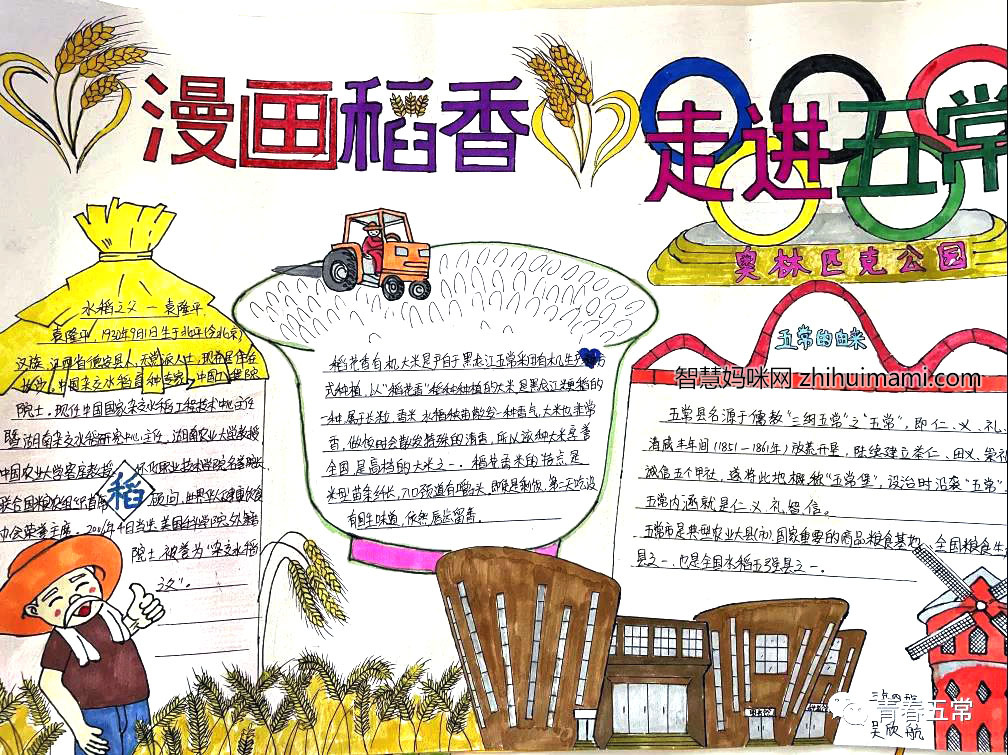 漫画稻香
走进五常
奥林匹克公园
水稻之父 — 袁隆平
袁隆平，1930年9月1日生于北平(今北京)
汉族，江西省德安县人，无党派人士，现在居住在
长沙，中国杂交水稻育种专家，中国工程院
院士。现任中国国家杂交水稻工程技术中心主任
暨湖南杂交水稻研究中心主任，湖南农业大学教授
中国农业大学客座教授，怀化职业技术学院名誉院长
联合国粮农组织首席顾问，世界华人健康饮食
协会荣誉主席，2006年4月当选美国科学院外籍
院士，被誉为"杂交水稻
之父"。
稻
稻花香有机大米是产自于黑龙江五常利用有机生产
式种植，以"稻花香"稻种种植的大米，是黑龙江更稻的
一种，属于长粒香米，水稻
香，做饭时会散发特殊的清香，所以该种大米享誉
全国，是高档的大米之一。稻花香米的特点是
米型苗条细长，入口顺道有嚼头，即使是剩饭，第二天吃没
有回生味道，依然唇齿留香。
五常的由来
智慧妈咪网 zhihuimami.com
五常县名源于儒教"三纲五常"之"五常"，即仁、义、礼、
清咸丰年间(1851－1861年)放荒开垦，陆续建立举仁、由义、崇礼
诚信五个甲社，遂将此地概称"五常堡"，设治时沿袭"五常"
五常内涵就是仁、义、礼、智、信。
五常市是典型农业大县(市)，国家重要的商品粮食基地，全国粮食生
县之一，也是全国水稻五强县之一。
青春五常
吴欣航